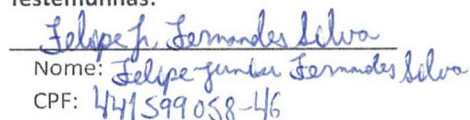 Testemunhas:
Felipe Jr. Fernandes Silva
Nome: Felipe Junior Fernandes Silva
CPF: 441599058-46